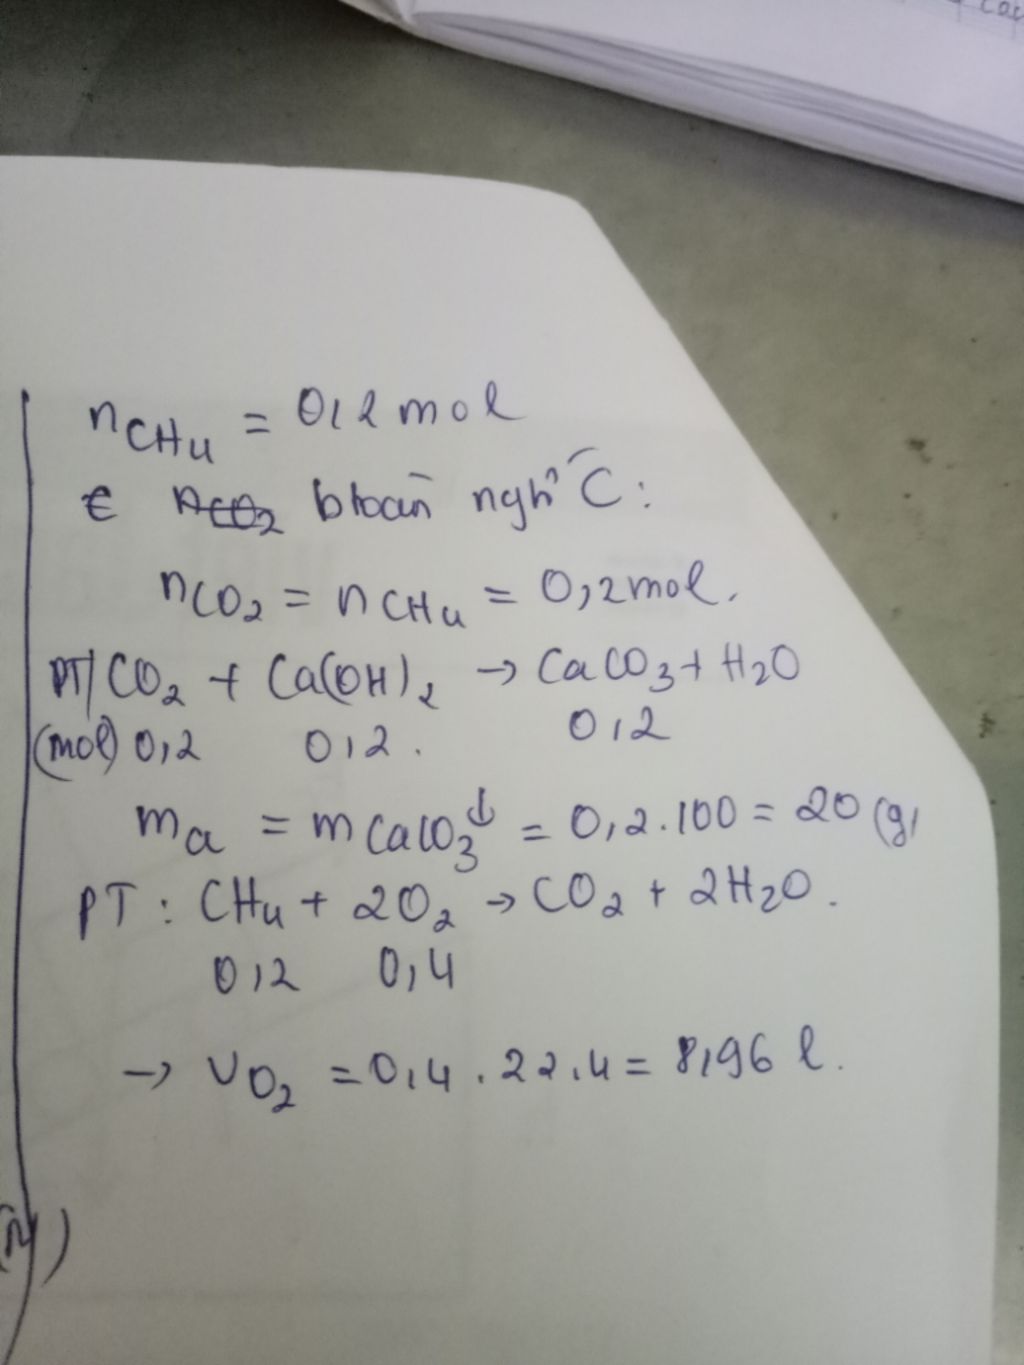 nCH4 = 0,2 mol
btoàn ngtố C:
nCO2 = nCH4 = 0,2 mol.
PT/ CO2 + Ca(OH)2 → CaCO3 + H2O
(mol) 0,2 0,2. 0,2
ma = mCaCO3↓ = 0,2.100 = 20 (g)
PT: CH4 + 2O2 → CO2 + 2H2O.
0,2 0,4
→ VO2 = 0,4 . 22,4 = 8,96 l.